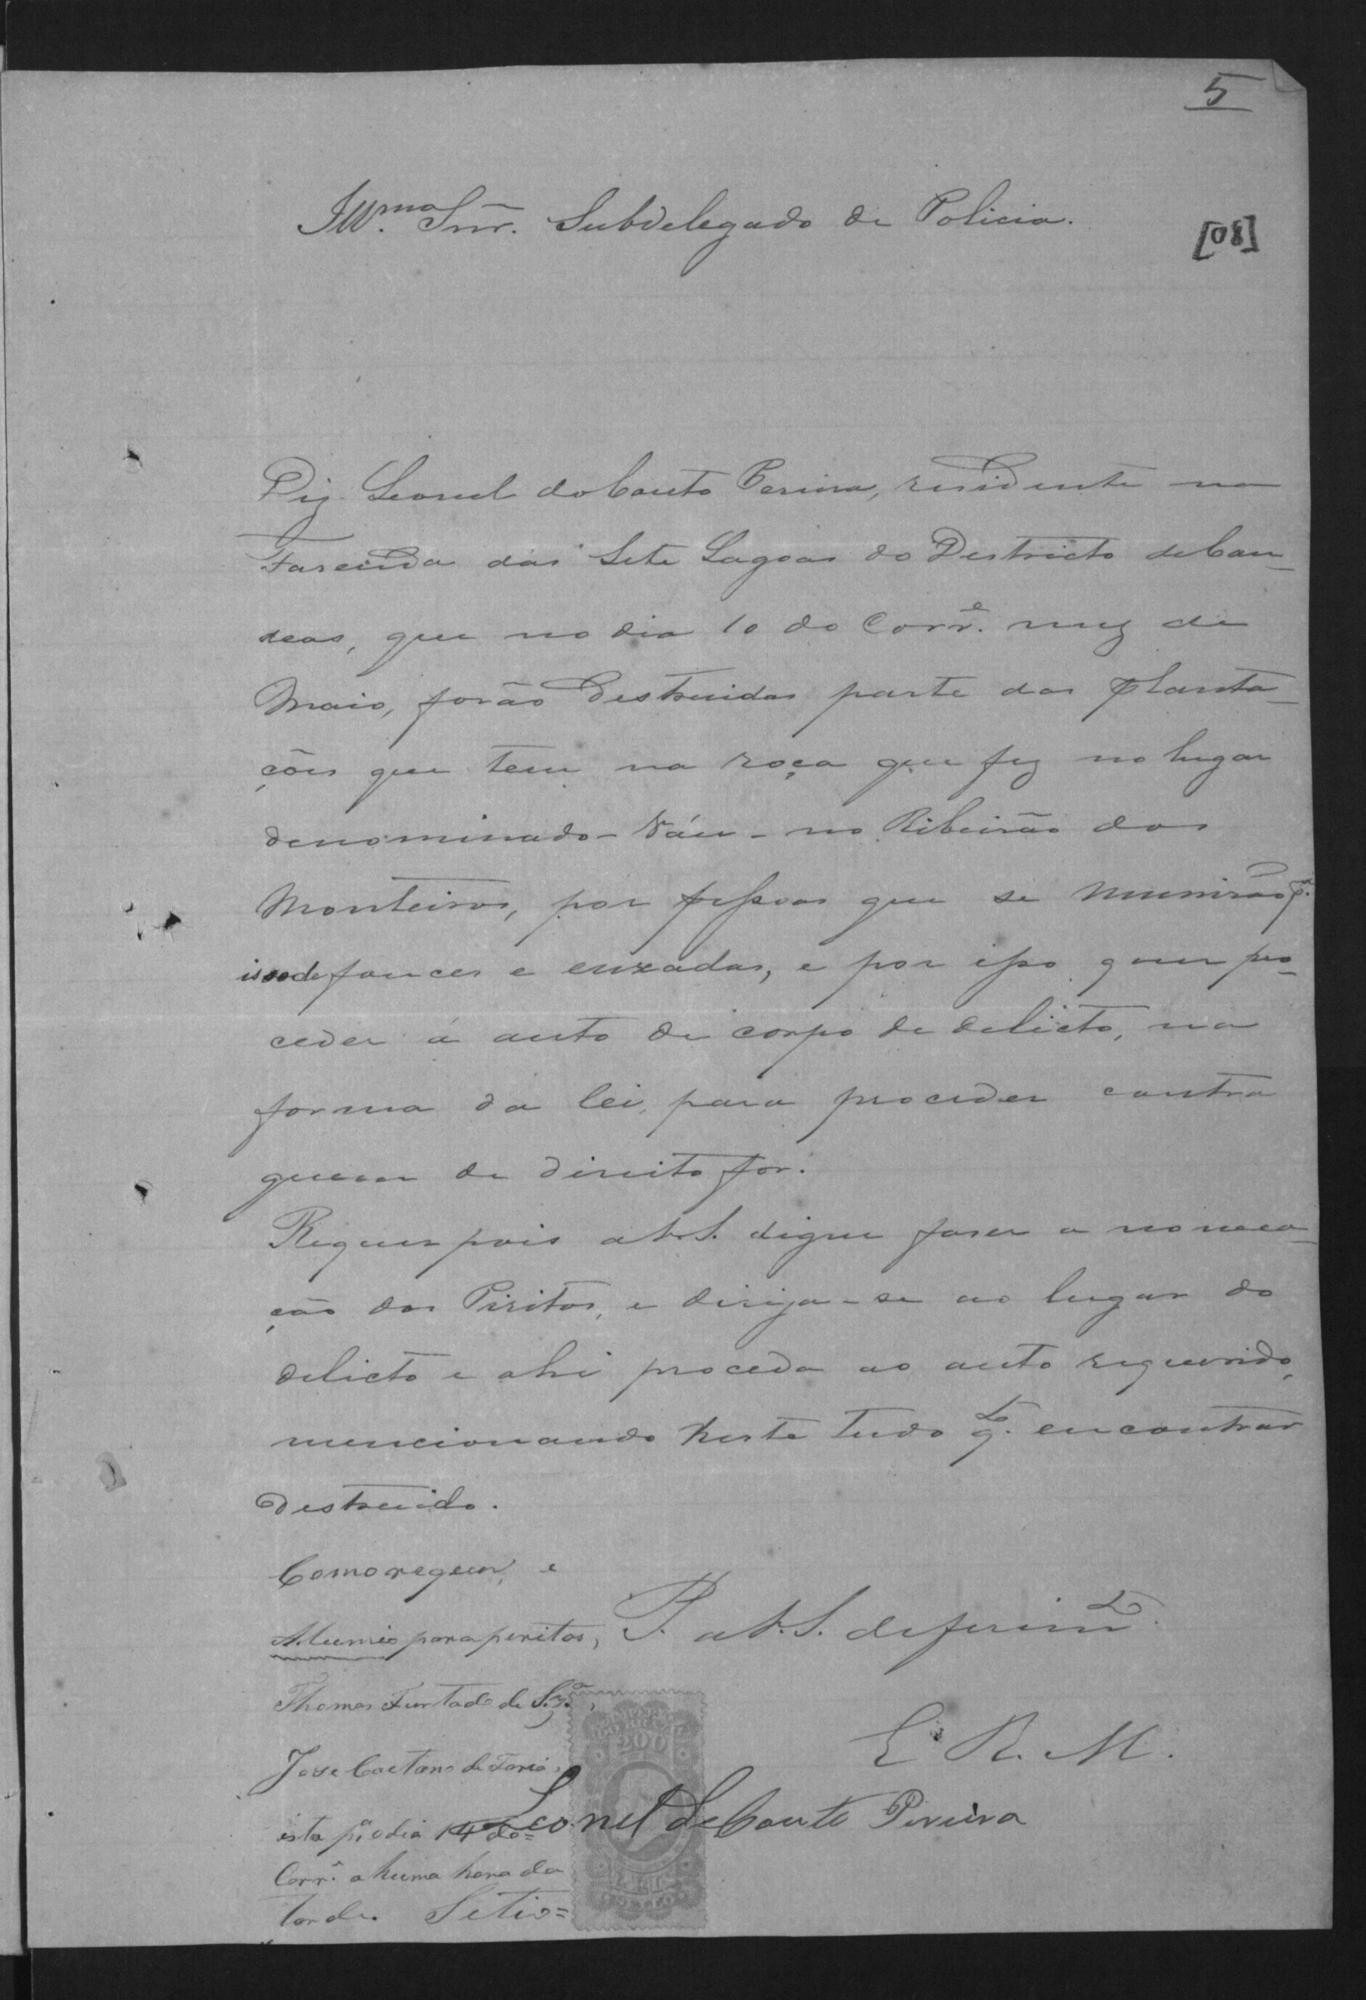 5
Illmo. Snr. Subdelegado de Policia.
[08]
Diz Leonel do Couto Pereira, residente na
Fazenda das Sete Lagoas do Destricto de Can-
deas, que no dia 10 do Corre. mez de
Maio, forão destruidas parte das planta-
ções que tem na roça que fez no lugar
denominado - Váu - no Ribeirão dos
Monteiros, por pessoas que se munirão pa.
isso de fouces e enxadas, e por isso quer pro-
ceder á auto de corpo de delicto, na
forma da lei, para proceder contra
quem de direito for.
Requer pois a V. S. digne faser a nomea-
ção dos Piritos, e dirija-se ao lugar do
delicto e ahi proceda ao auto requerido,
mencionando neste tudo qto. encontrar
destruido.
Como requer, e
Numeio para peritos,
P. a V. S. deferimto.
Thomas Furtado de Sza.,
E. R. M.
Jose Caetano de Faria,
Leonel do Couto Pereira
esta po. o dia 14 do=
Corre. a huma hora da
tarde. Setio=
200